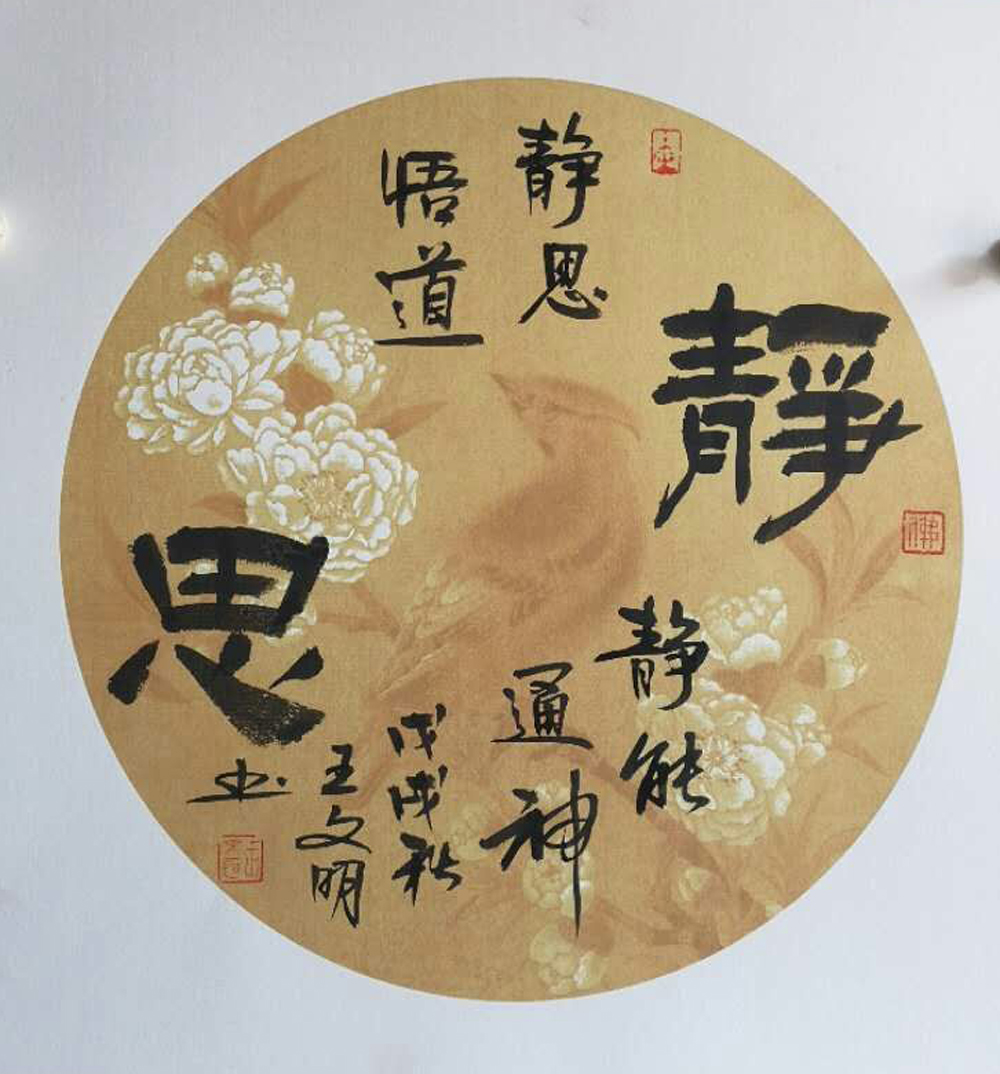 靜
思
静思
悟道
静能
通神
戊戌秋
王文明
书